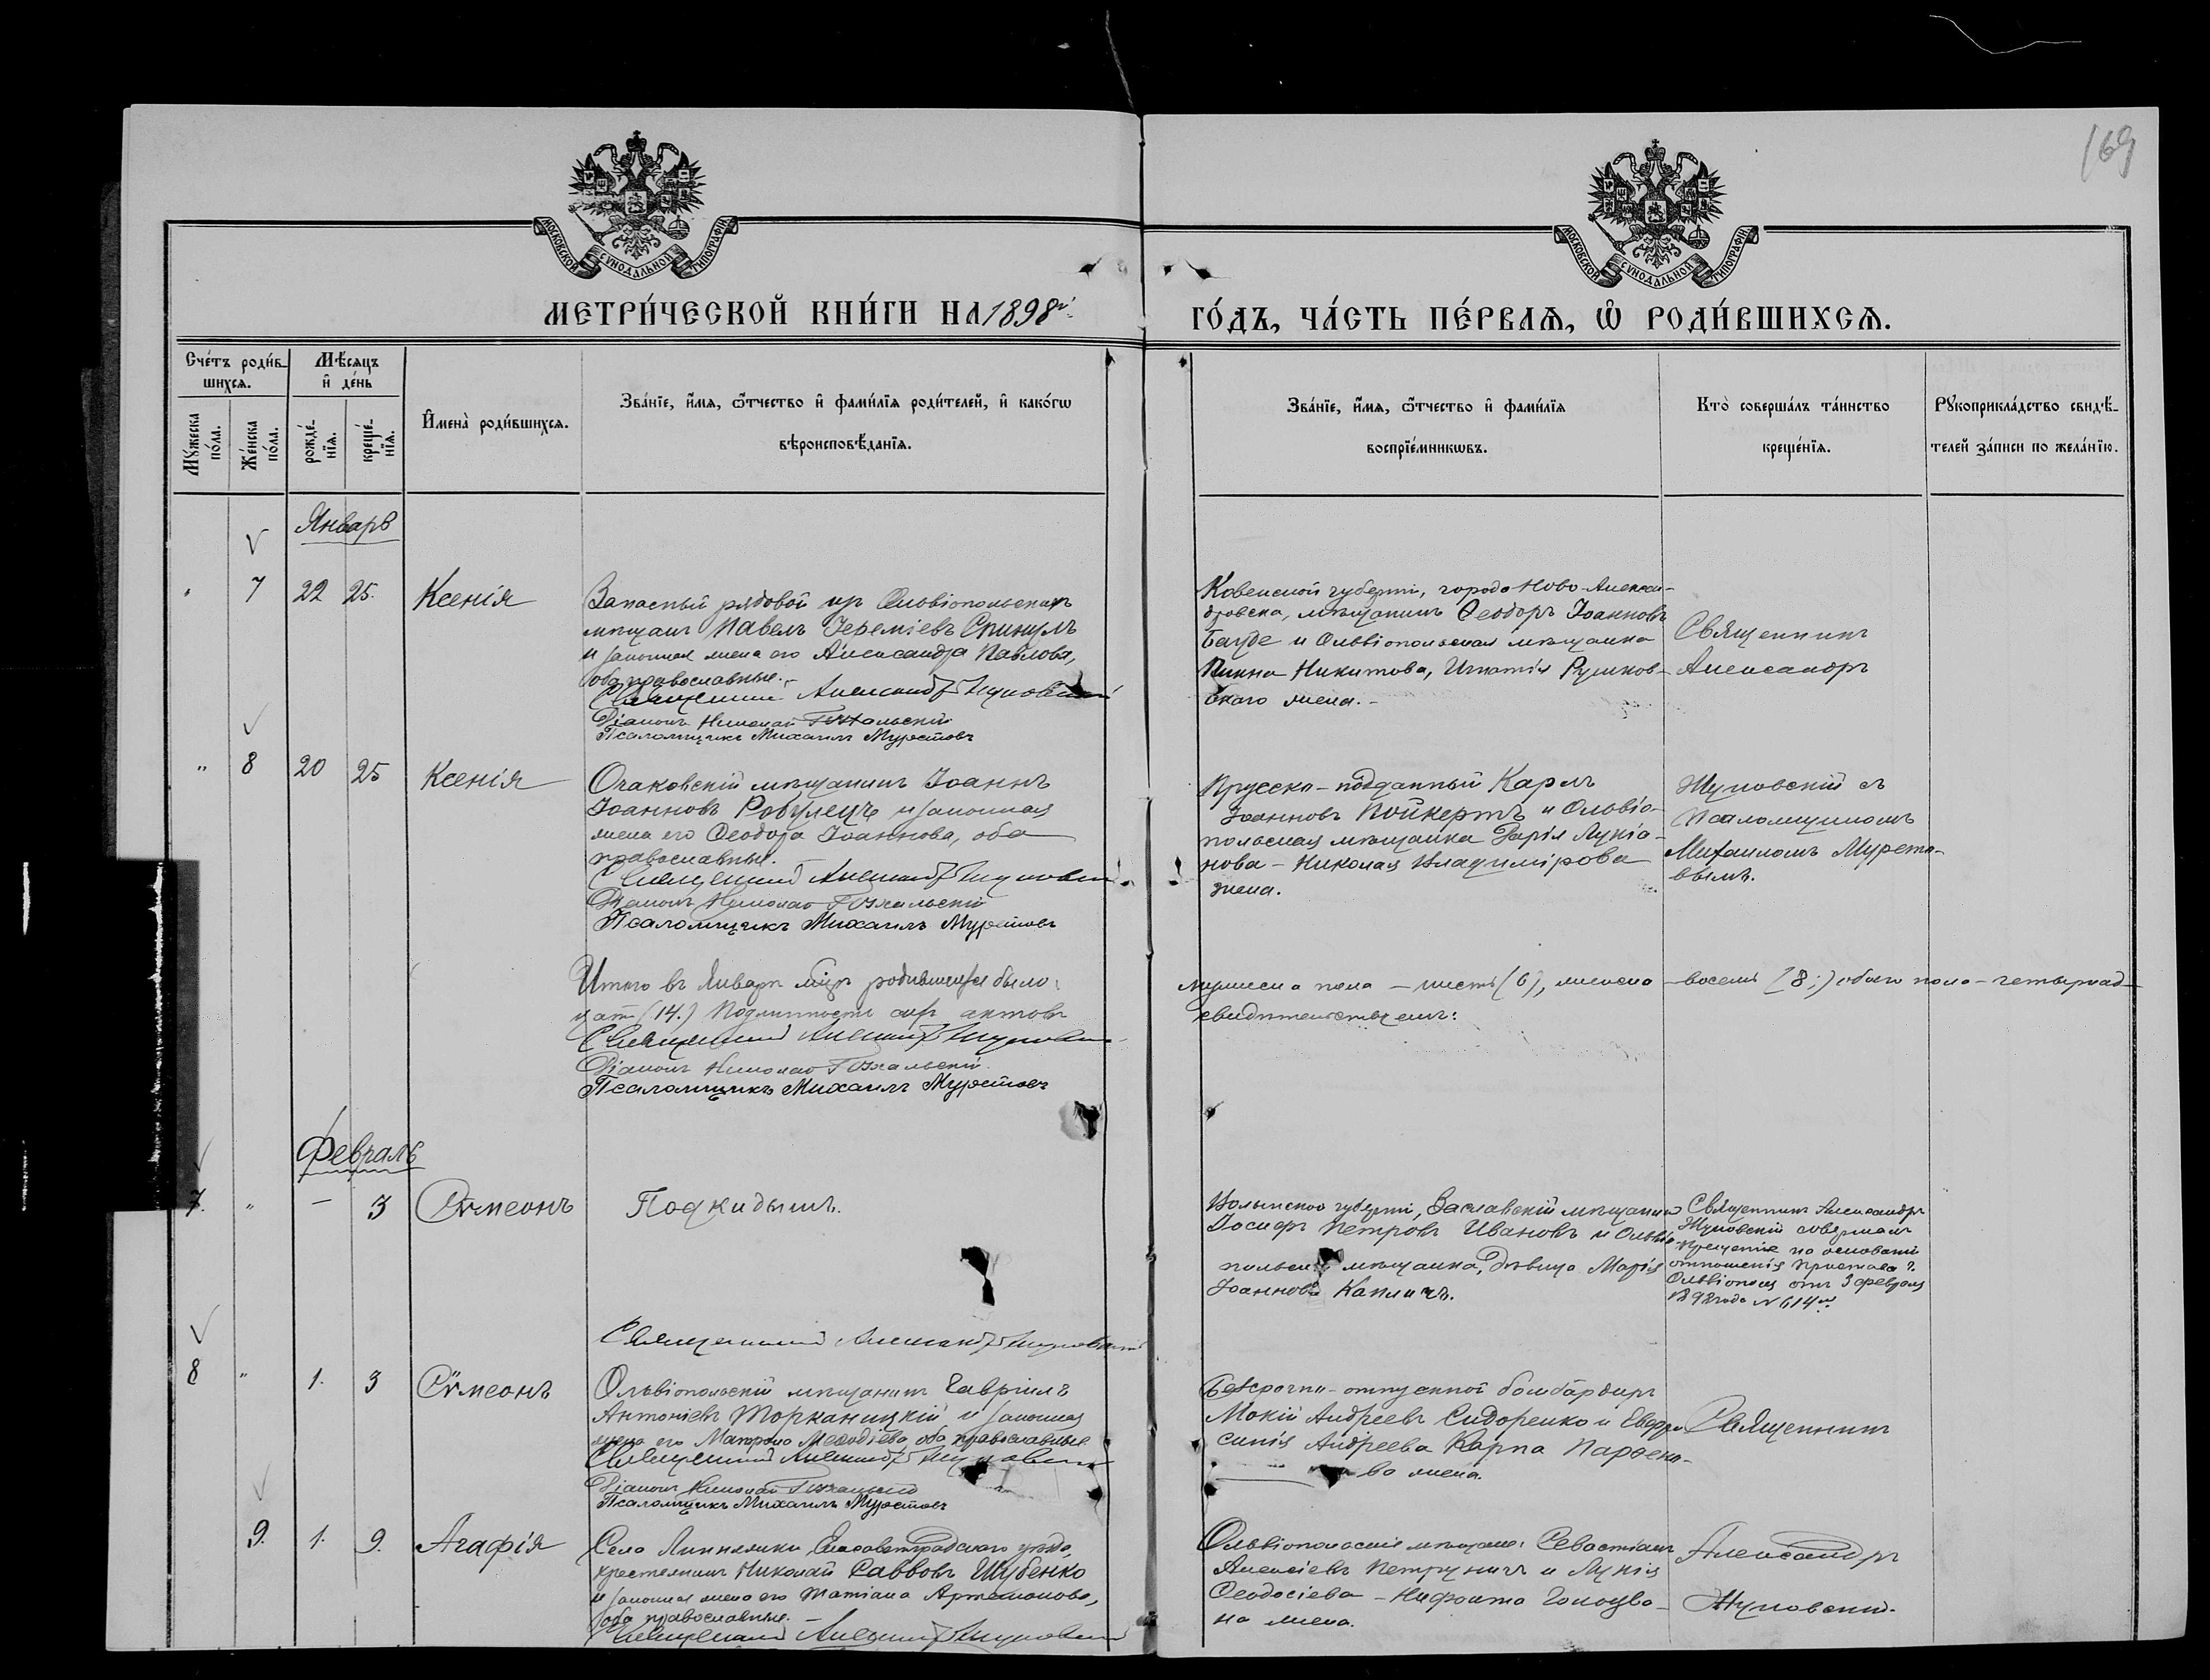 169
МОСКОВСКОЙ СѴНОДАЛЬНОЙ ТИПОГРАФІИ
МОСКОВСКОЙ СѴНОДАЛЬНОЙ ТИПОГРАФІИ
МЕТРИ́ЧЕСКОЙ КНИ́ГИ НА 1898й
ГО́ДЪ, ЧА́СТЬ ПЕ́РВАѦ, Ѡ РОДИ́ВШИХСѦ.
Сче́тъ роди́в-
шихсѧ.
Мѣ́сѧцъ
и҆ де́нь
Мꙋ́жеска по́ла.
Же́нска по́ла.
рожде́-нїѧ.
креще́-нїѧ.
И҆мена̀ роди́вшихсѧ.
Зва́нїе, и҆́мѧ, ѻ҆́тчество и҆ фами́лїѧ роди́телей, и҆ како́гѡ
вѣроисповѣ́данїѧ.
Зва́нїе, и҆́мѧ, ѻ҆́тчество и҆ фами́лїѧ
воспрїе́мникѡвъ.
Кто̀ соверша́лъ та́инство
креще́нїѧ.
Рꙋкоприкла́дство свидѣ́-
телей за́писи по жела́нїю.
Январь
7 22 25. Ксенія
Запасный рядовой изъ Ольвіопольскихъ
мѣщанъ Павелъ Іереміевъ Спинулъ
и законная жена его Александра Павлова,
оба православные.
Священникъ Александръ Жуковскій
Діаконъ Николай
Псаломщикъ Михаилъ Муретовъ
Ковенской губерніи, города Ново-Алексан-
дровска, мѣщанинъ Ѳеодоръ Іоанновъ
и Ольвіопольская мѣщанка
Никитова, Игнатія
жена.-
Священникъ
Александръ
" 8 20 25 Ксенія
Очаковскій мѣщанинъ Іоаннъ
Іоанновъ Робулецъ и законная
жена его Ѳеодора Іоаннова, оба
православные.
Священникъ Александръ Жуковскій
Діаконъ Николай
Псаломщикъ Михаилъ Муретовъ
Прусско-подданный Карлъ
Іоанновъ Пойкертъ и Ольвіо-
польская мѣщанка Дарія Лукіа-
нова - Николая Владимірова
жена.
Жуковскій съ
Псаломщикомъ
Михаиломъ Мурето-
вымъ.
Итого въ Январѣ мѣсцѣ родившихся было:
мужеска пола - шесть (6), женска - восемь (8;) обоего пола - четырнад-
цать (14.) Подлинность сихъ актовъ
свидѣтельствуемъ:
Священникъ Александръ Жуковскій
Діаконъ Николай
Псаломщикъ Михаилъ Муретовъ
Февраль
7. " - 3 Сѵмеонъ
Подкидышъ.
Волынской губерніи, Заславскій мѣщанинъ
Іосифъ Петровъ Ивановъ и Ольвіо-
польская мѣщанка, дѣвица Марія
Іоаннова Капличъ.
Священникъ Александръ
Жуковскій совершалъ
крещеніе на основаніи
отношенія Пристава г.
Ольвіополя отъ 3 февраля
1898 года № 614
Священникъ Александръ Жуковскій
8 " 1. 3 Сѵмеонъ
Ольвіопольскій мѣщанинъ Гавріилъ
Антоніевъ Торканицкій и законная
жена его Матрона Меѳодіева оба православные
Священникъ Александръ Жуковскій
Діаконъ Николай
Псаломщикъ Михаилъ Муретовъ
Безсрочно-отпускной бомбардиръ
Мокій Андреевъ Сидоренко и Евфро-
синія Андреева Карпа Парѳено-
ва жена.
Священникъ
9. 1. 9. Агафія
Села Липняжки, Елисаветградскаго уѣзда,
крестьянинъ Николай Саввовъ Шубенко
и законная жена его Татіана Артамонова,
оба православные. -
Священникъ Александръ Жуковскій
Ольвіопольскіе мѣщане: Севастіанъ
Алексіевъ Петруничъ и Лукія
Ѳеодосіева - Нифонта
на жена.
Александръ
Жуковскій.